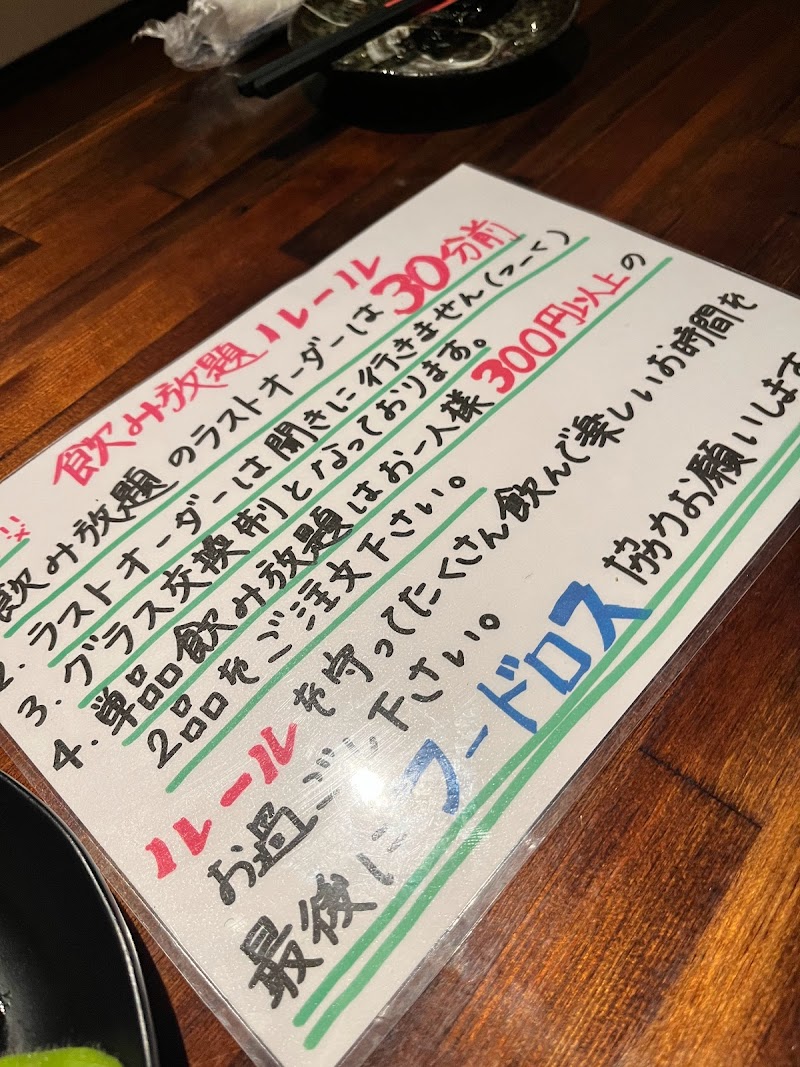 飲み放題ルール
飲み放題のラストオーダーは30分前
2. ラストオーダーは聞きに行きません(つーく)
3. グラス交換制となっております。
4. 単品飲み放題はお一人様300円以上の
2品をご注文下さい。
ルールを守ってたくさん飲んで楽しいお時間を
お過ごし下さい。
最後にフードロス協力お願いします